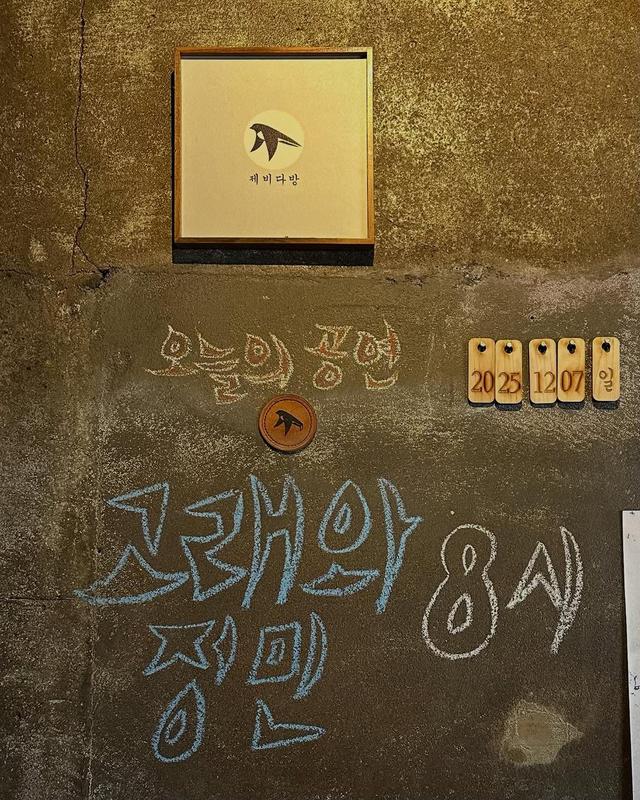 제비다방
오늘의 공연
20 25 12 07 일
고래와
정민
8시